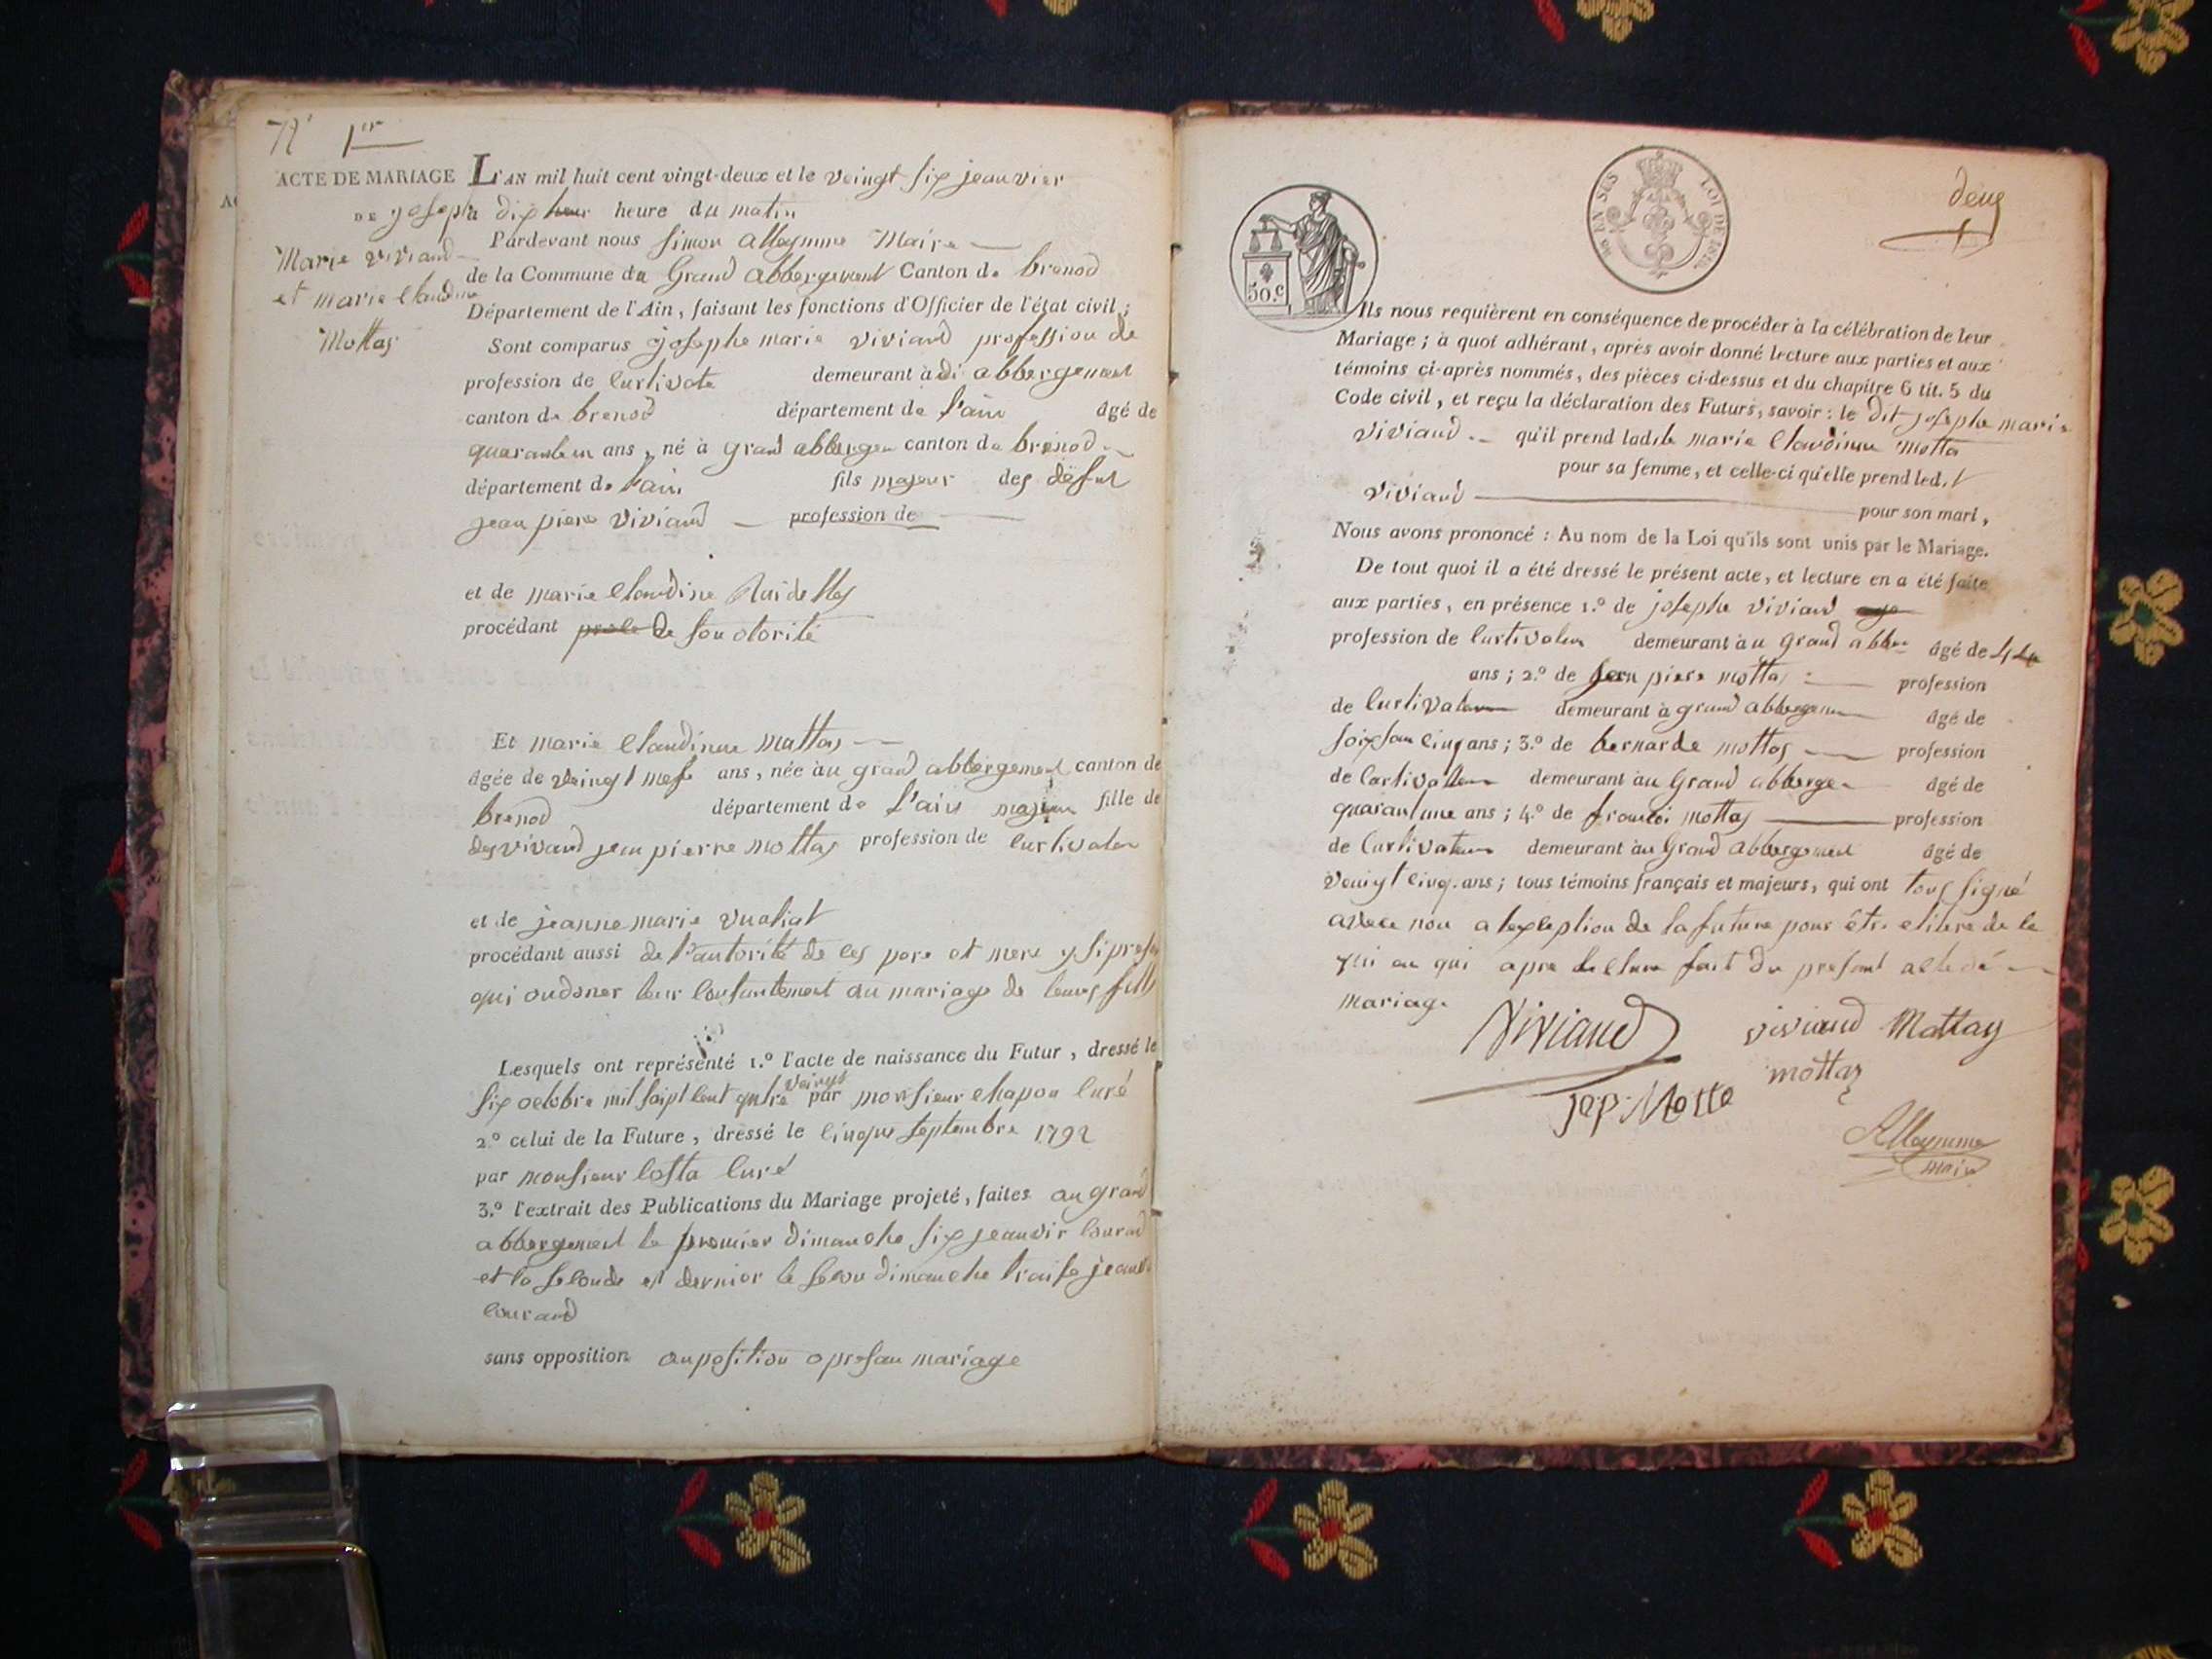 N° 1er
ACTE DE MARIAGE
DE joseph
Marie viviand
et marie Claudine
Mottas
L'AN mil huit cent vingt-deux et le veingt six jeanvier
dix heur heure du matin
Pardevant nous simon alleymme Maire
de la Commune du Grand abbergement Canton de brenod
Département de l'Ain, faisant les fonctions d'Officier de l'état civil;
Sont comparus josephe marie viviand profession de
profession de curtivate demeurant à di abbergement
canton de brenod département de l'ain âgé de
ans, né à grand abbergen canton de brenod
département de l'ain fils majeur des défut
jean piere viviand profession de
et de marie Claudine
procédant de son otorité
Et marie Claudinne Mattas
âgée de veingt nefe ans, née àu grand abbergement canton de
brenod département de l'ain majeur fille de
des vivand jean pierre mottas profession de curtivater
et de jeanne marie
procédant aussi de l'autorité de ces pere et mere
qui ondoner leur consantement au mariage de leur fille
Lesquels ont représenté 1.° l'acte de naissance du Futur, dressé le
six octobre mil saipt cent qatre veingt par monsieur chapon curé
2.° celui de la Future, dressé le cinque septembre 1792
par monsieur costa curé
3.° l'extrait des Publications du Mariage projeté, faites au grand
abbergement le premier dimanche six jeanvir courand
et la seconde et dernier le secon dimanche traise
courand
sans opposition auposition apresau mariage
deux
50.c
EN SUS
LOI DE
Ils nous requièrent en conséquence de procéder à la célébration de leur
Mariage; à quoi adhérant, après avoir donné lecture aux parties et aux
témoins ci-après nommés, des pièces ci-dessus et du chapitre 6 tit. 5 du
Code civil, et reçu la déclaration des Futurs, savoir: le dit josephe marie
viviand qu'il prend ladite marie Claudinne motta
pour sa femme, et celle-ci qu'elle prend led.t
viviand pour son mari,
Nous avons prononcé: Au nom de la Loi qu'ils sont unis par le Mariage.
De tout quoi il a été dressé le présent acte, et lecture en a été faite
aux parties, en présence 1.° de josephe viviand
profession de curtivateur demeurant àu grand âgé de
ans; 2.° de jean piere mottas profession
de curtivateur demeurant à grand abbergemen âgé de
soixsan cinq ans; 3.° de bernarde mottas profession
de curtivateur demeurant àu Grand abberge âgé de
quarantune ans; 4.° de francoi mottas profession
de curtivateur demeurant àu Grand abbergement âgé de
veingt cinq ans; tous témoins français et majeurs, qui ont tous signé
avece nou a lexception de la future pour être
apre lecture fait du present acte dé
mariage
Viviand viviand Mattas
mottaz
j-p-Motte
Alleymme
maire